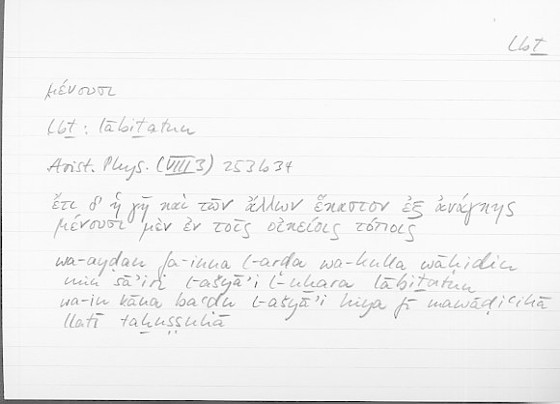 lbṯ
μένουσι
lbṯ : lābiṯatun
Arist. Phys. (VIII 3) 253b34
ἔτι δ' ἡ γῆ καὶ τῶν ἄλλων ἕκαστον ἐξ ἀνάγκης
μένουσι μὲν ἐν τοῖς οἰκείοις τόποις
wa-ayḍan fa-inna l-arḍa wa-kulla wāḥidin
min sā'iri l-ašyā'i l-uḫara lābiṯatun
wa-in kāna baʿḍu l-ašyā'i hiya fī mawāḍiʿihā
llatī taḫuṣṣuhā